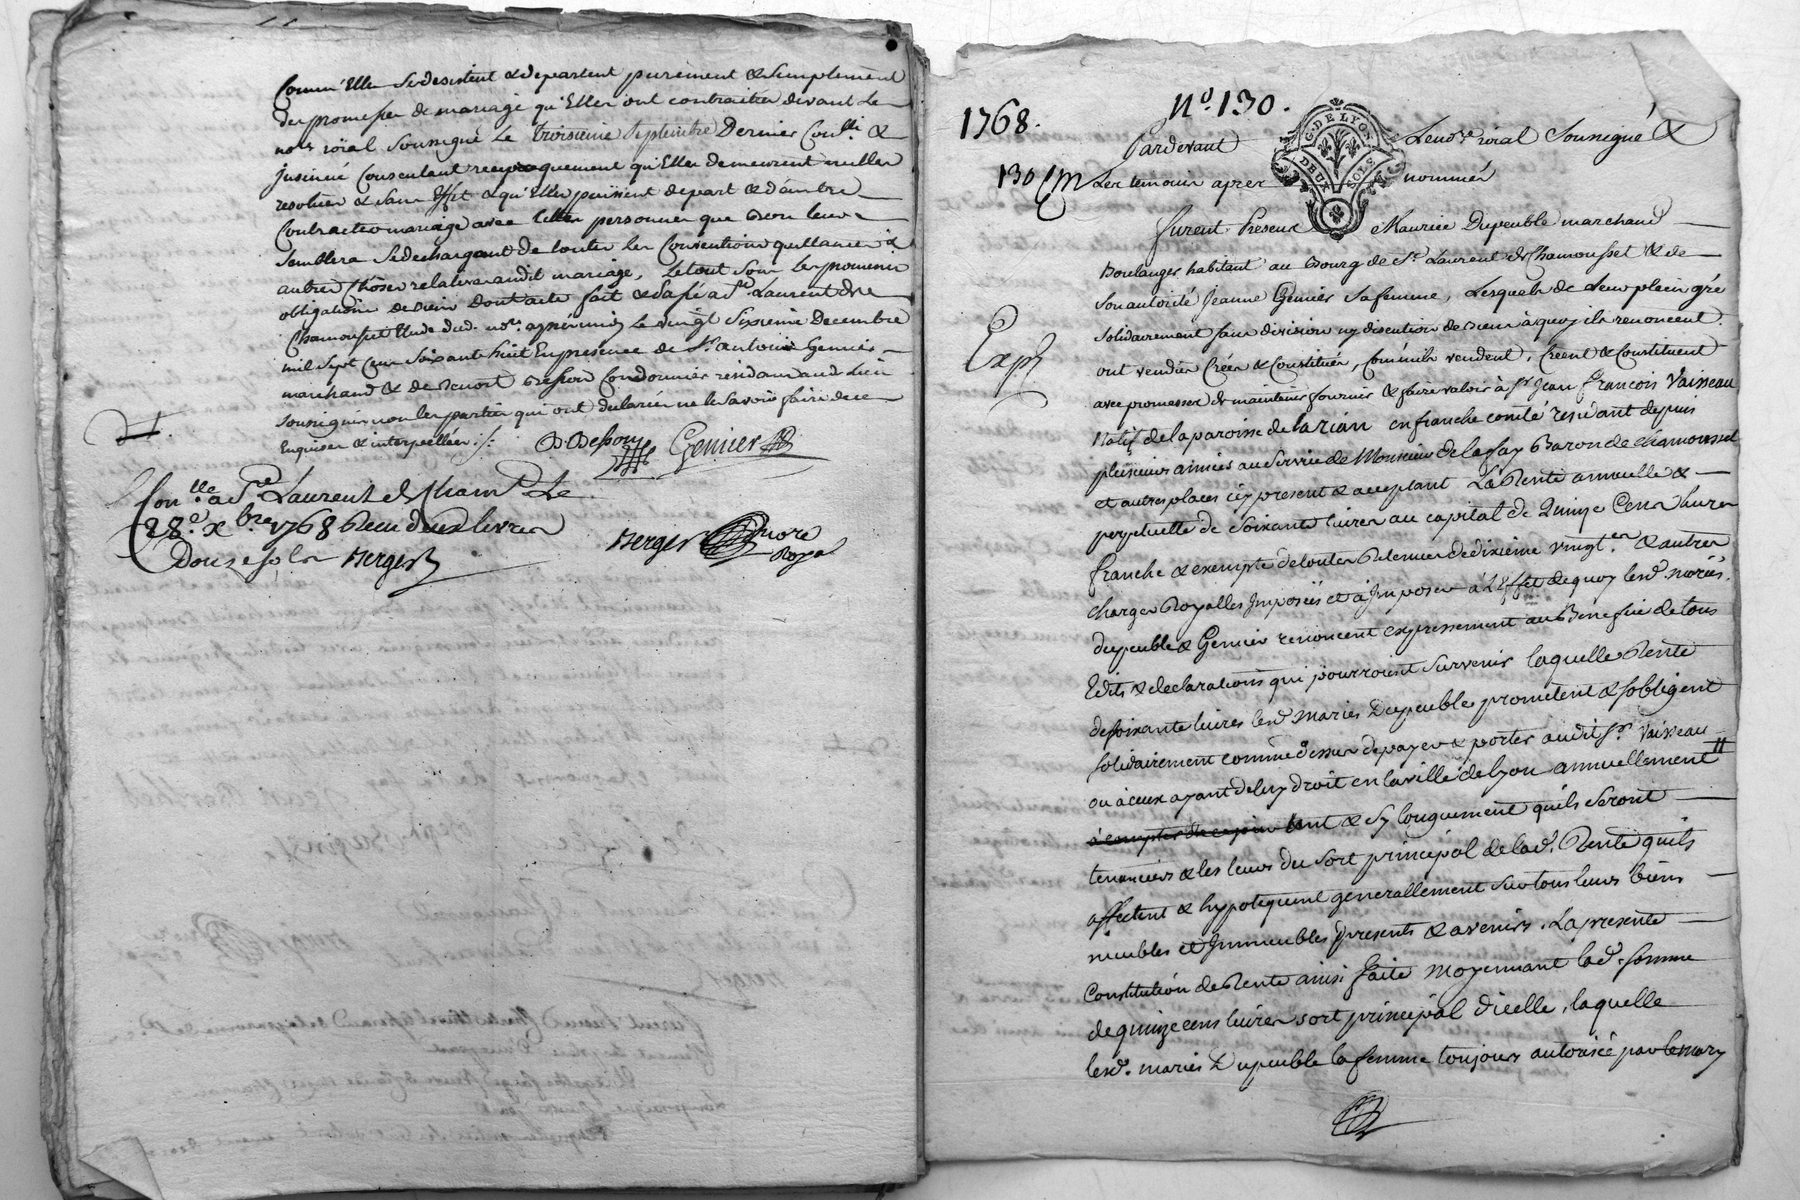 Comm'Elles se desistent & departent purement & simplement
des promesses de mariage qu'Elles ont contraittes devant le
no.re roial soussigné le troisieme septembre Dernier Con.llé &
jnsinué Consentant reciproquement qu'Elles demeurent nulles
resolues & sans Effet & qu'Elles puissent depart & d'autre
Contracter mariage avec telles personnes que bon leur
semblera se dechargeant de toutes les Conventions quittances &
autres choses relatives audit mariage, le tout sous les promesses
obligations de biens dont acte fait & passé a S.t Laurent de
Chamousset Etude dud. no.re apres midy le vingt sixieme Decembre
mil sept cens soixante huit En presence de S.r antoine Genier
marchand & de Benoit Cordonnier residans aud. lieu
soussignés non les parties qui ont declaré ne le savoir faire de ce
Enquises & interpellées ./.
Genier
Con.llé a S.t Laurent de Cham.t le
28.e xbre 1768 Reçu deux livres
Douze sols Berger
Berger Nore
Royal
1768.
N.o 130.
G. DE LYON
DEUX SOLS
Pardevant Le no.re roial soussigné &
130 Les temoins apres nommés
furent Presens Maurice Dupeuble marchand
Boulanger habitant au Bourg de S.t Laurent de Chamousset & de
son autorité Jeanne Genier sa femme, Lesquels de leur plein gré
Exp.é
solidairement sans division ny discution de biens à quoy ils renoncent
ont vendu Créés & Constitués, Comm'ils vendent, Créent & Constituent
avec promesses de maintenir fournir & faire valoir à S.r Jean françois Vaisseau
Natif de la paroisse de larian en franche comté residant depuis
plusieurs années au service de Monsieur de la fay Baron de chamousset
et autres places icy present & acceptant La Rente annuelle &
perpetuelle de soixante livres au capital de Quinze Cens livres
franche & exempte de toutes Retenues de dixieme vingt.es & autres
charges Royalles Imposées et à Imposer à l'Effet de quoy lesd. mariés
dupeuble & Genier renoncent expressement au Benefice de tous
Edits & declarations qui pourroient survenir laquelle Rente
de soixante livres lesd. mariés Dupeuble promettent & s'obligent
solidairement comme dessus de payer & porter audit S.r Vaisseau
ou à ceux ayant de luy droit en la ville de lyon annuellement
à compter de ce jour tant & sy longuement qu'ils seront
tenanciers & les leurs du sort principal de lad. Rente qu'ils
affectent & hypotequent generallement sur tous leurs biens
meubles et Immeubles presents & avenirs. La presente
Constitution de Rente ainsi faite Moyennant lad. somme
de quinze cens livres sort principal d'icelle, laquelle
lesd. mariés Dupeuble la femme toujours autorisée par le mary